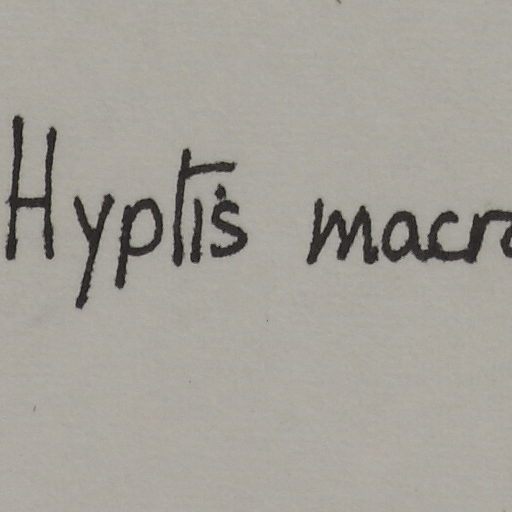 Hyptis macro